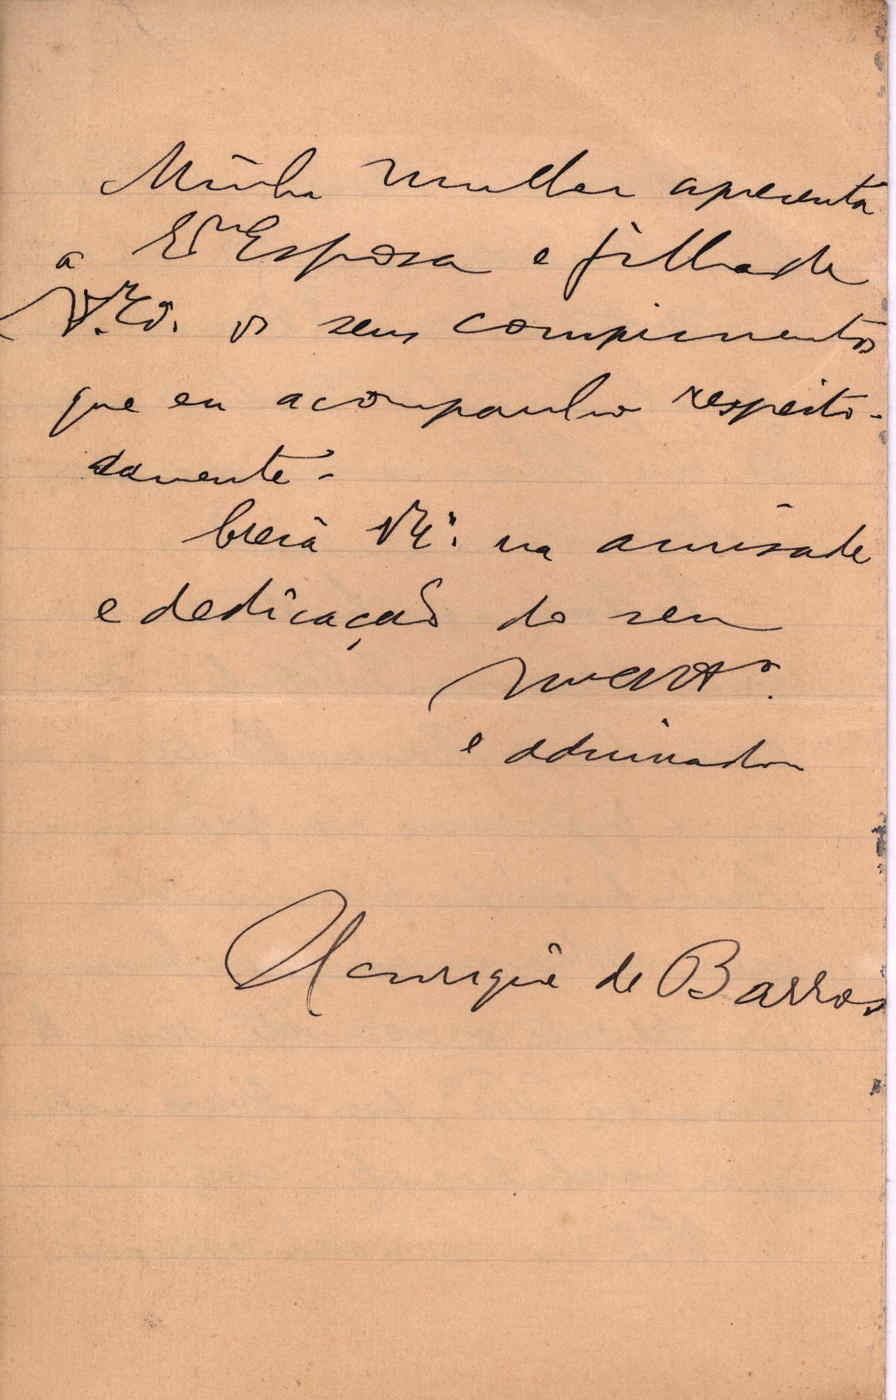 Minha mulher apresenta
a Exma Esposa e filha de
V. Exa. os seus comprimentos
que eu acompanho respeito-
samente.
Creia V. Exa. na amisade
e dedicação do seu
e admirador
Henrique de Barros